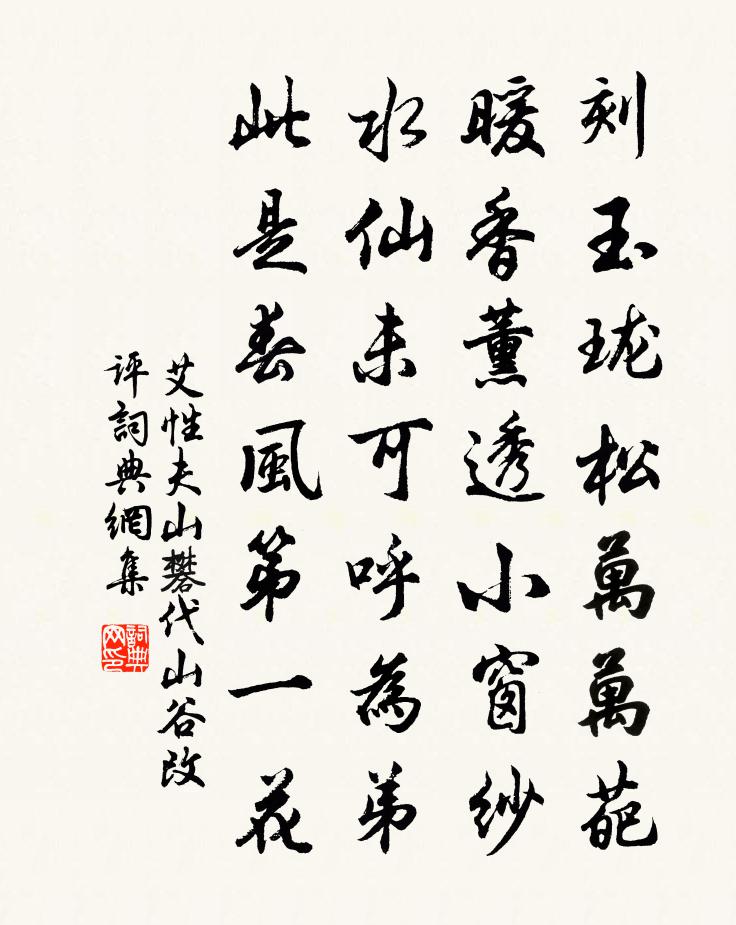 刻玉珑松萬萬葩
暖香薰透小窗紗
水仙未可呼為弟
此是春風第一花
艾性夫山礬代山谷改
评詞典網集
詞典網印